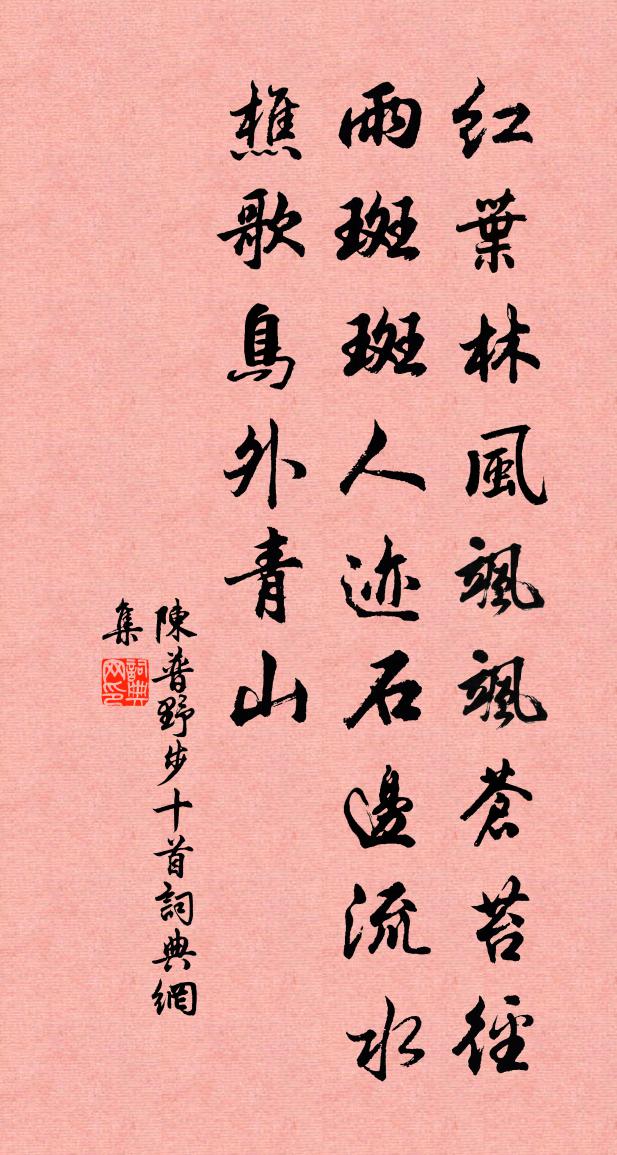 红葉林風颯颯蒼苔徑
雨斑斑人迹石邊流水
樵歌鳥外青山
陳普野步十首詞典網
集
詞典
网印